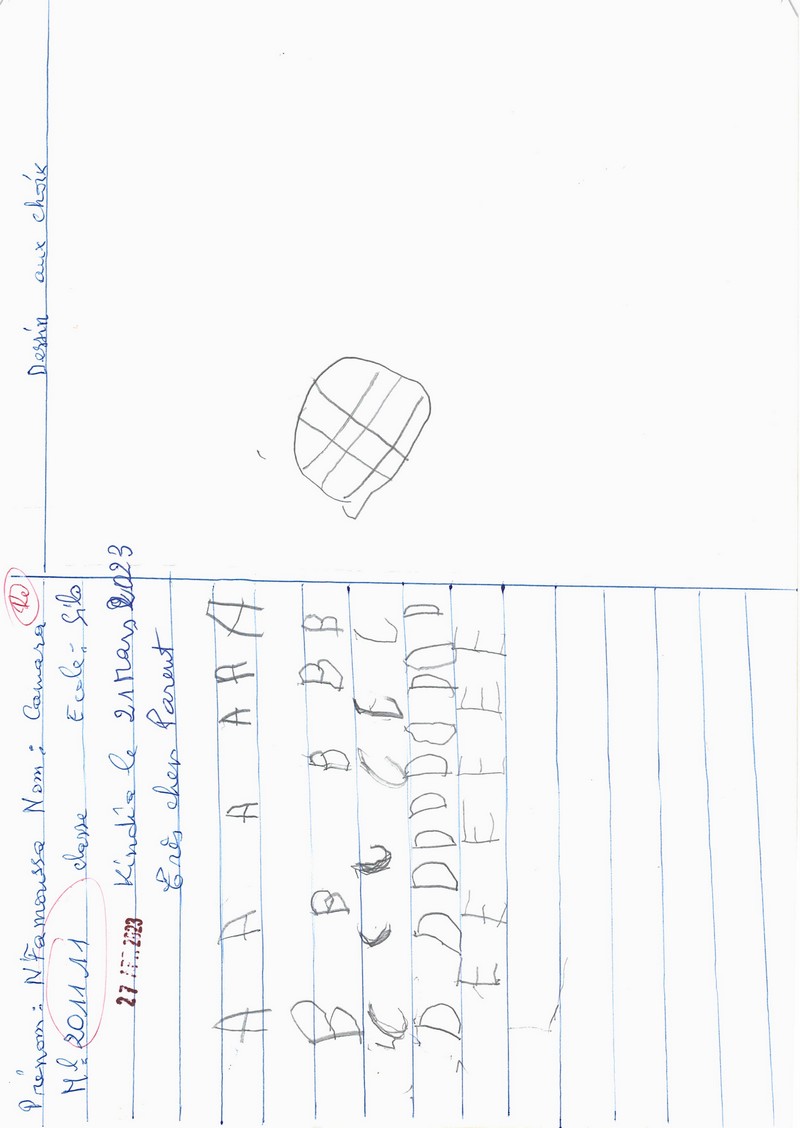 Prénom: N'Famoussa Nom: Camara
Ml: 201111 classe Ecole: Silo
Kindia le 21 Mars 2023
Très cher Parent
A A A A A A
B B B B B
C C C C C
D D D D D D D D D
E E E E E E
Dessin aux choix